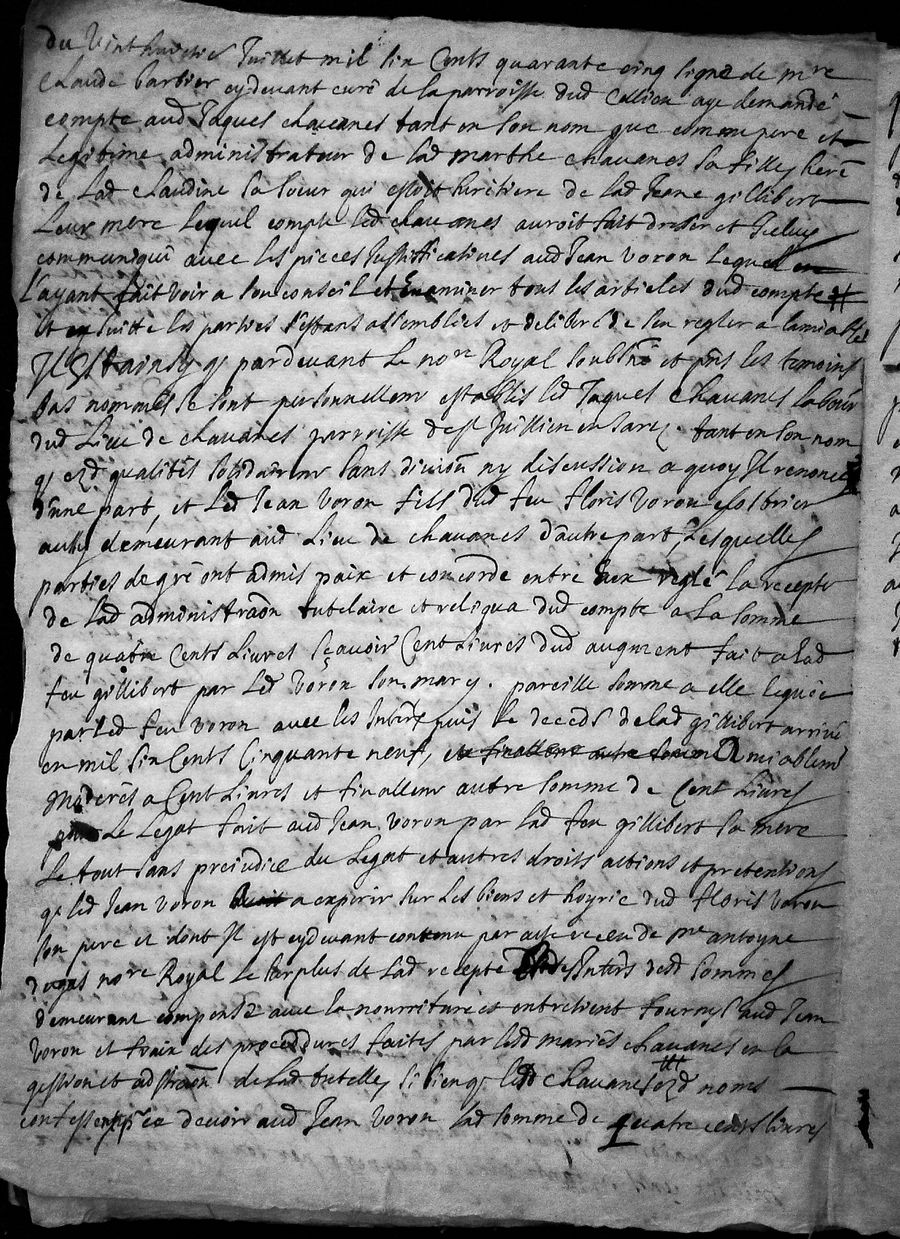 du Vint huicties Juillet mil six Cents quarante cinq signé de mre
Claude barbier cydevant curé de la parroisse dud Cellieu aye demandé
compte aud Jaques chavanes tant en son nom que comme pere et
Legitime administrateur de lad marthe chavanes sa fille, herê
de Lad Claudine sa soeur qui estoit heritiere de lad Jeane gillibert
Leur mere Lequel compte led chavanes auroit fait dresser et Icelluy
communiqué avec les pieces Justifficatives aud Jean voron Lequel en
L'ayant fait voir a son conseil et Examiner tous les articles dud compte
et en suitte les parties s'estans assemblées et deliberé de s'en regler a lamiable
Il Est ainsy q pardevant Le nore Royal soubsné et pñs les temoins
bas nommes se sont personnellemt establis led Jaques Chavanes labour
dud Lieu de chavanes parroisse de st Jullien en Jarez tant en son nom
q esd qualités solidairemt sans division ny discussion a quoy Il renonce
d'une part, et Led Jean voron fils dud feu floris voron
aussy demeurant aud Lieu de chavanes d'autre part, Lesquelles
parties de gré ont admis paix et concorde entre Eux reglé la recepte
de lad administraôn tutelaire et reliqua dud compte a La somme
de quatre Cents Livres sçavoir Cent Livres dud augment fait a Lad
feu gillibert par Led voron son mary. pareille somme a elle leguée
par Led feu voron avec les Interestz puis le deceds de lad gillibert arrivé
en mil six Cents Cinquante neuf, et finallemt autre somme amiablemt
Moderés a Cent Livres et finallemt autre somme de Cent Livres
pour Le Legat fait aud Jean voron par lad feu gillibert sa mere
Le tout sans preiudice du Legat et autres droits actions et pretentions
q led Jean voron a experir sur Les biens et hoyrie dud floris voron
son pere et dont Il est cydevant contenu par acte receu de me antoyne
dugas nore Royal Le surplus de Lad recepte Interts desd sommes
demeurant compensé avec la nourriture et entretient fournys aud Jean
voron et fraix des procedures faites par lesd mariés chavanes en la
gestion et adstraôn de lad tutelle, si bien q lesd chavanes esd noms
confessent devoir aud Jean voron lad somme de quatre cents livres